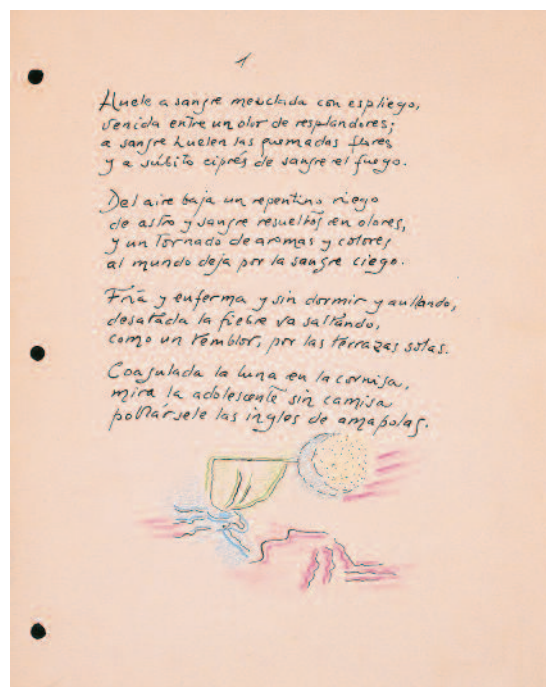 1
Huele a sangre mezclada con espliego,
venida entre un olor de resplandores;
a sangre huelen las quemadas flores
y a súbito ciprés de sangre el fuego.
Del aire baja un repentino riego
de astro y sangre resueltos en olores,
y un tornado de aromas y colores
al mundo deja por la sangre ciego.
Fría y enferma y sin dormir y aullando,
desatada la fiebre va saltando,
como un temblor, por las terrazas solas.
Coagulada la luna en la cornisa,
mira la adolescente sin camisa
poblársele las ingles de amapolas.